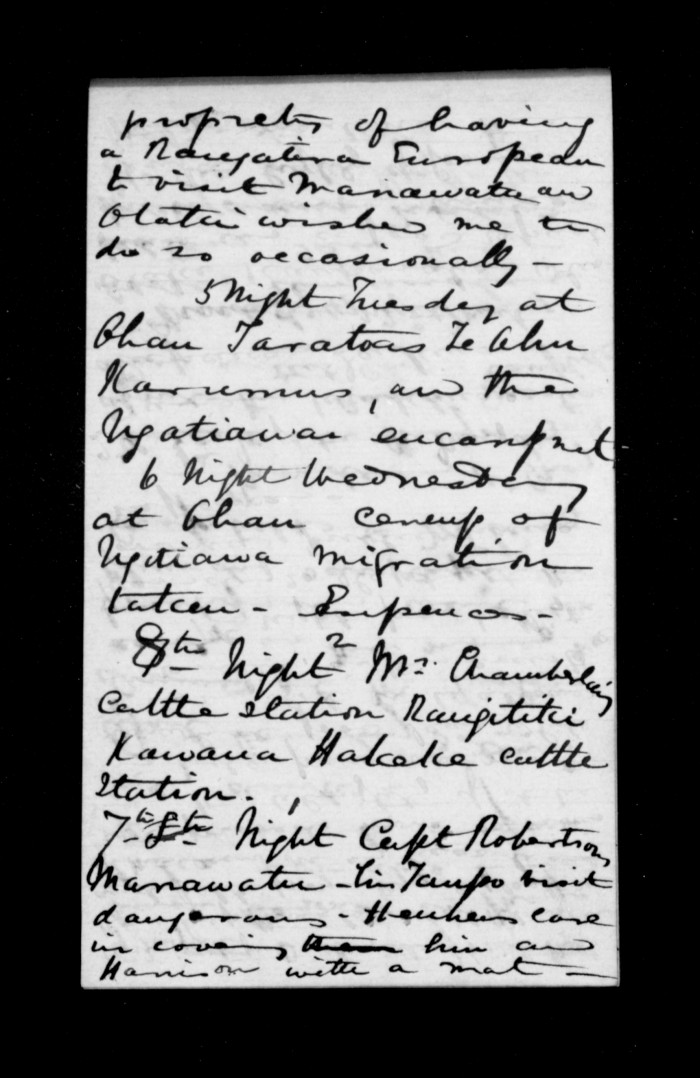 propriety of having
a Rangatira European
to visit Manawatu and
Otaki wished me to
do so occasionally -
5 Night Tuesday at
Ohau Taratoas Te Ahu
Karumus, and the
Ngatiawa encampnt
6 Night Wednesday
at Ohau census of
Ngatiawa migration
taken -
8th Night 2 Mr. Chamberlains
Cattle Station Rangitiki
Kawana Hakeke cattle
Station.
7th 8th Night Capt Robertsons
Manawatu - his Taupo visit
dangerous - Heuheus care
in covering them him and
Harrison with a mat -